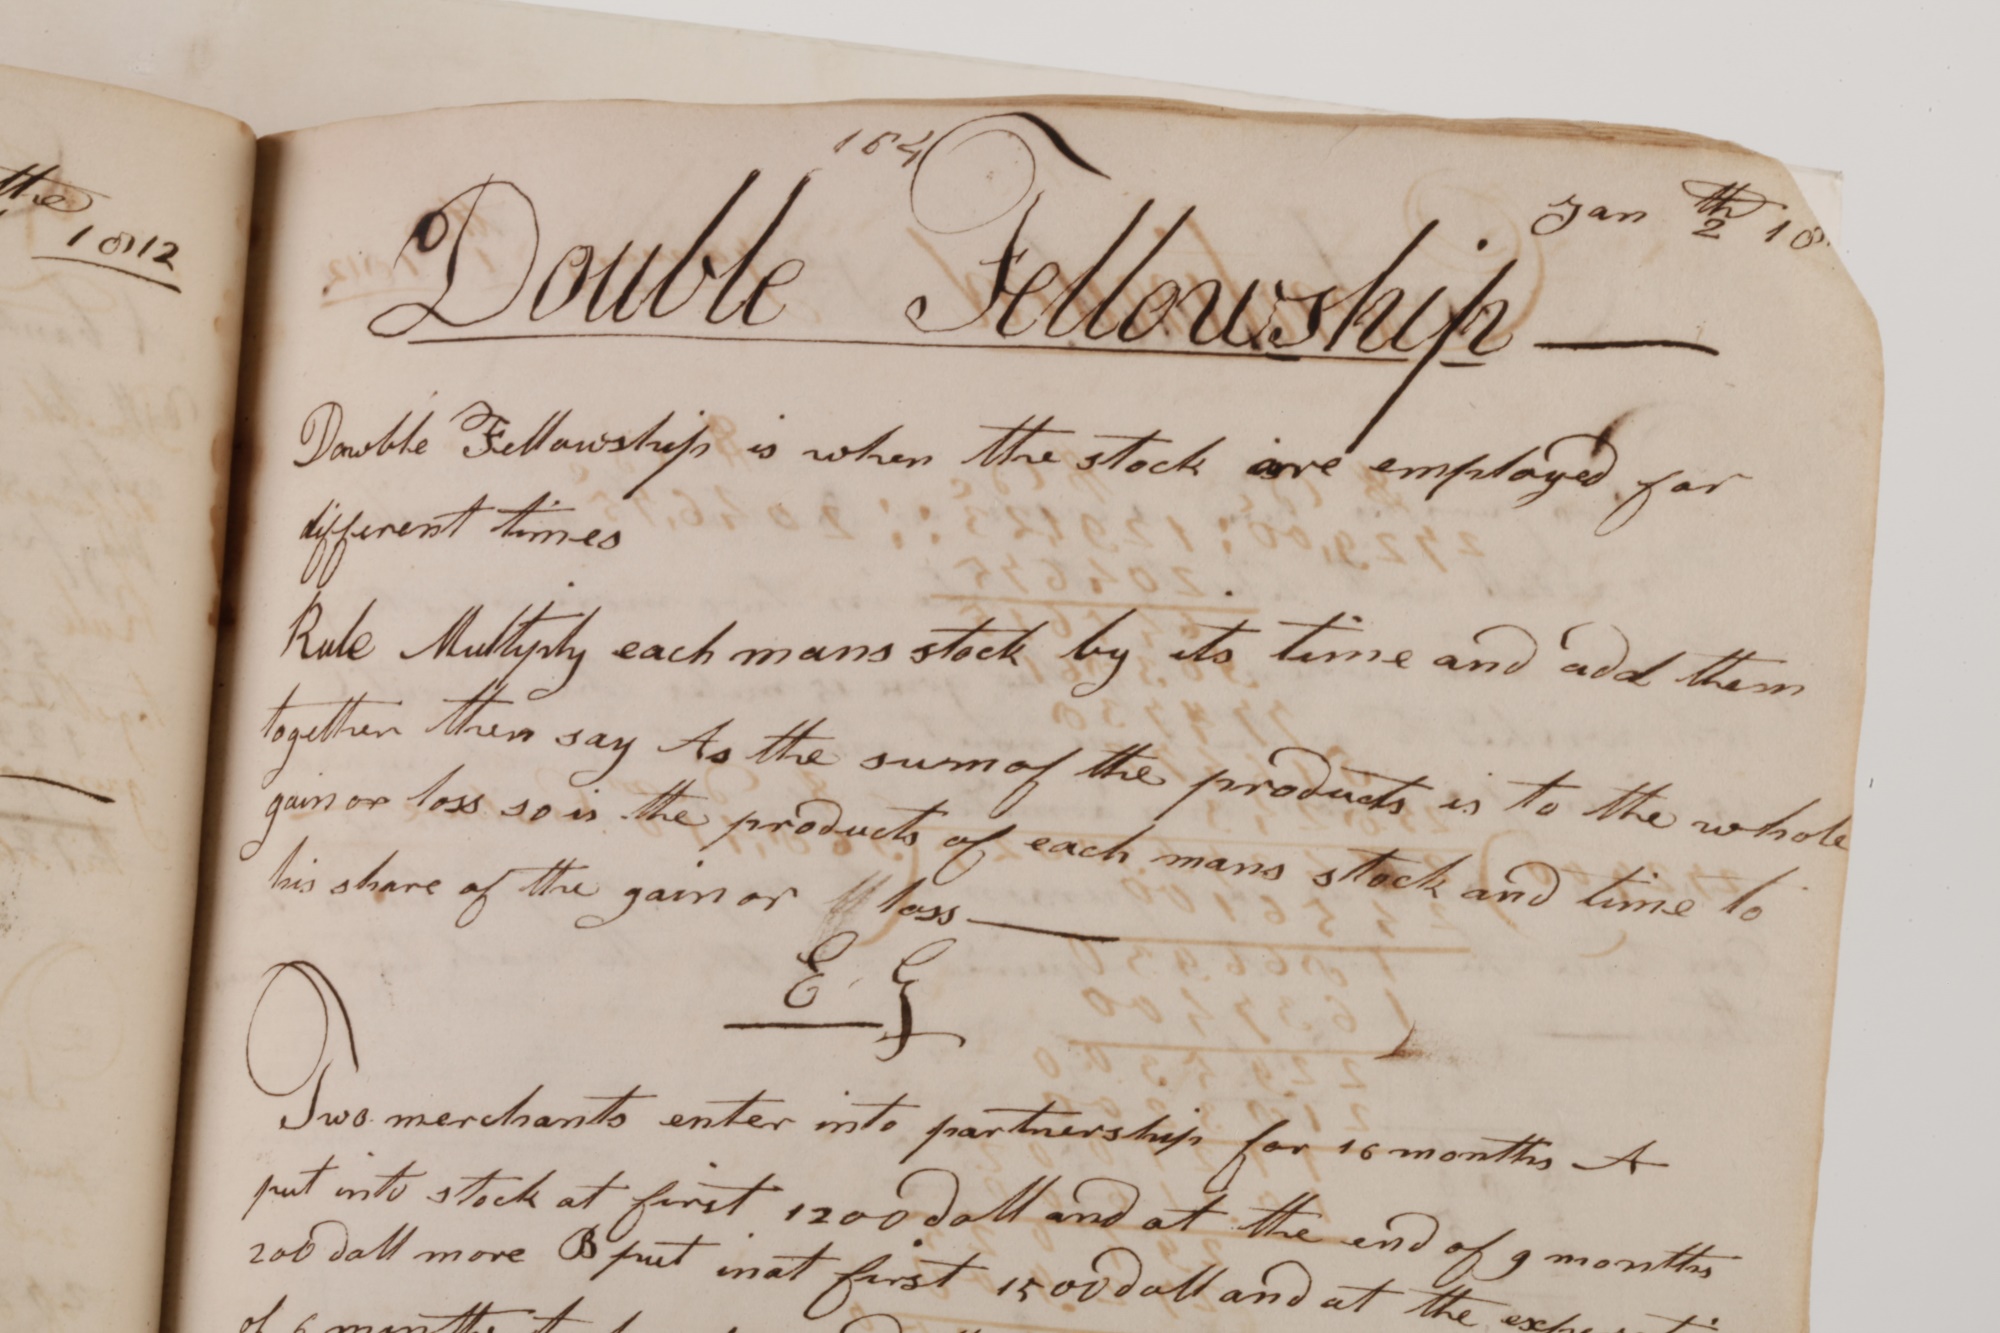 the
1812
164
Jan 2th 18
Double Fellowship
Double Fellowship is when the stock are employed for
different times
Rule Multiply each mans stock by its time and add them
together then say As the sum of the products is to the whole
gain or loss so is the products of each mans stock and time to
his share of the gain or loss
E G
Two merchants enter into partnership for 16 months A
put into stock at first 1200 doll and at the end of 9 months
200 doll more B put in at first 1500 doll and at the
of 6 months